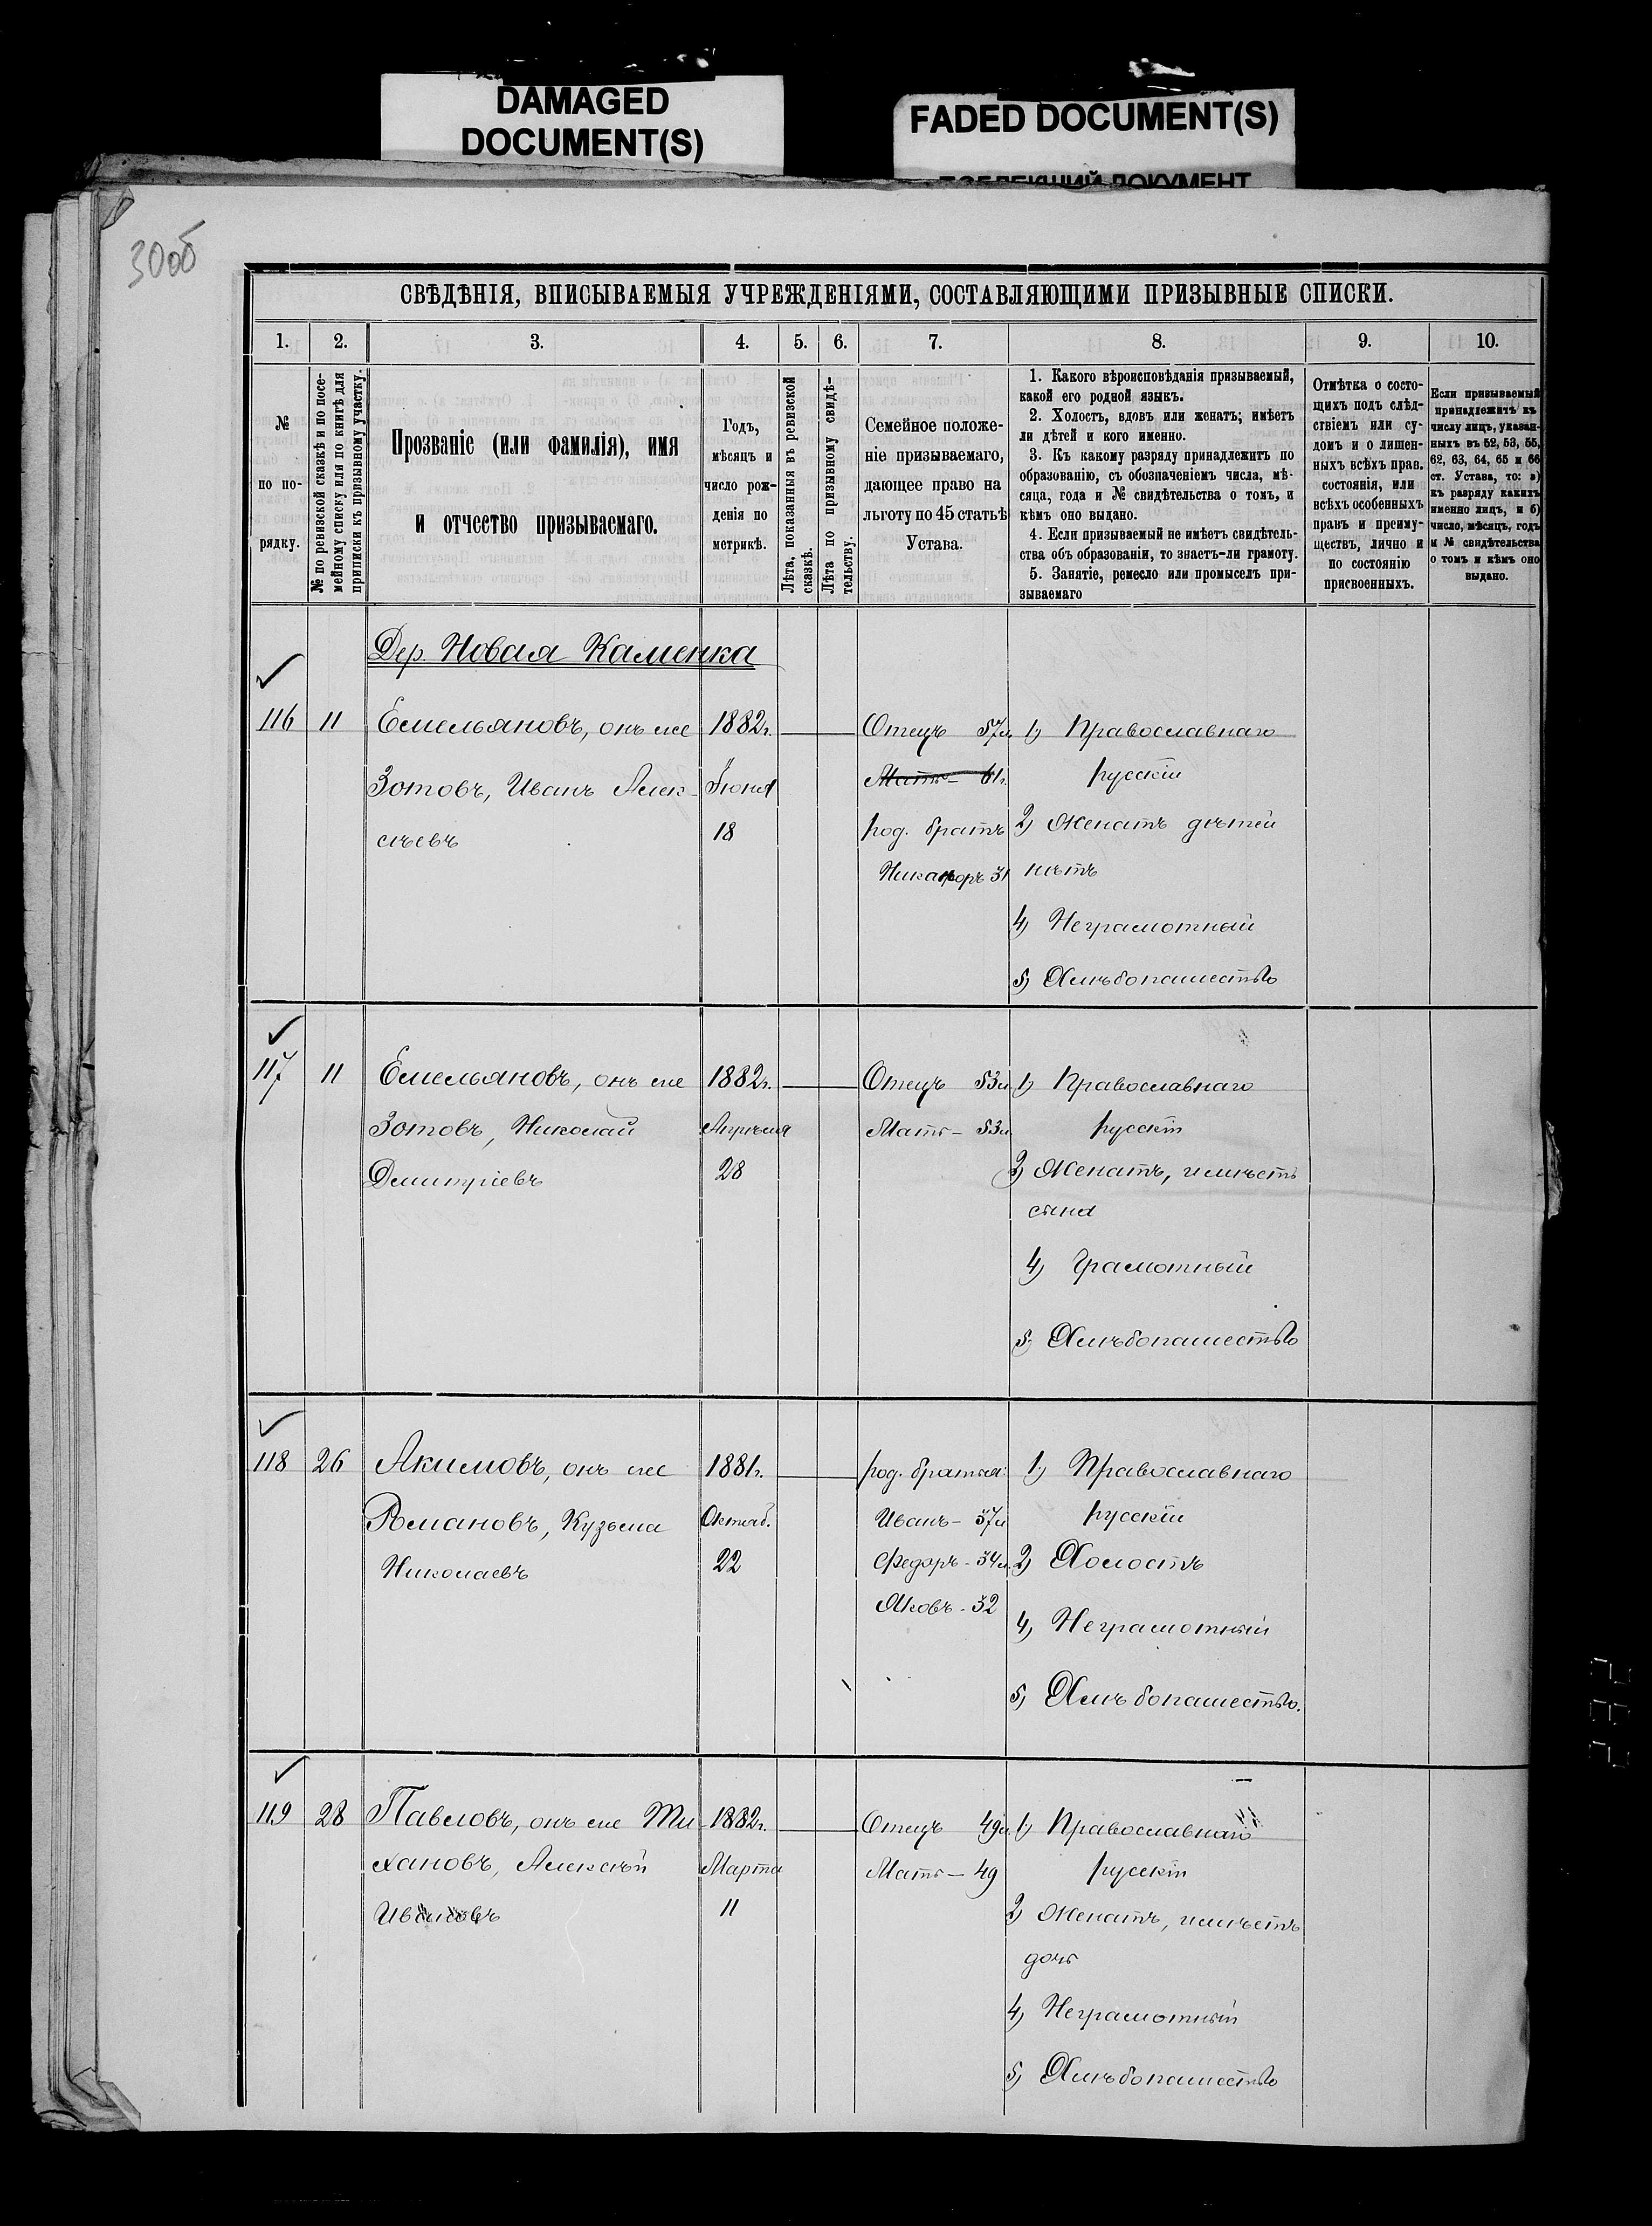 DAMAGED
DOCUMENT(S)
FADED DOCUMENT(S)
30об
СВѢДѢНІЯ, ВПИСЫВАЕМЫЯ УЧРЕЖДЕНІЯМИ, СОСТАВЛЯЮЩИМИ ПРИЗЫВНЫЕ СПИСКИ.
1. 2. 3. 4. 5. 6. 7. 8. 9. 10.
№
по по-
рядку.
№ по ревизской сказкѣ и по посе-
мейному списку или по книгѣ для
приписки къ призывному участку.
Прозваніе (или фамилія), имя
и отчество призываемаго.
Годъ,
мѣсяцъ и
число рож-
денія по
метрикѣ.
Лѣта, показанныя въ ревизской
сказкѣ.
Лѣта по призывному свидѣ-
тельству.
Семейное положе-
ніе призываемаго,
дающее право на
льготу по 45 статьѣ
Устава.
1. Какого вѣроисповѣданія призываемый,
какой его родной языкъ.
2. Холостъ, вдовъ или женатъ; имѣетъ
ли дѣтей и кого именно.
3. Къ какому разряду принадлежитъ по
образованію, съ обозначеніемъ числа, мѣ-
сяца, года и № свидѣтельства о томъ, и
кѣмъ оно выдано.
4. Если призываемый не имѣетъ свидѣтель-
ства объ образованіи, то знаетъ-ли грамоту.
5. Занятіе, ремесло или промыселъ при-
зываемаго
Отмѣтка о состо-
щихъ подъ слѣд-
ствіемъ или су-
домъ и о лишен-
ныхъ всѣхъ прав.
состоянія, или
всѣхъ особенныхъ
правъ и преиму-
ществъ, лично и
по состоянію
присвоенныхъ.
Если призываемый
принадлежитъ къ
числу лицъ, указан-
ныхъ въ 52, 53, 55,
62, 63, 64, 65 и 66
ст. Устава, то: а)
къ разряду какихъ
именно лицъ, и б)
число, мѣсяцъ, годъ
и № свидѣтельства
о томъ и кѣмъ оно
выдано.
Дер. Новая Каменка
116 11 Емельяновъ, онъ же 1882г. Отецъ 57л 1) Православнаго
Зотовъ, Иванъ Алек- Іюня Мать- 61г. русскій
сѣевъ 18 род. братъ 2) Женатъ дѣтей
Никаноръ 31 нѣтъ
4) Неграмотный
5) Хлѣбопашество
117 11 Емельяновъ, онъ же 1882г. Отецъ 53л 1) Православнаго
Зотовъ, Николай Апрѣля Мать- 53л русскій
Дмитріевъ 28 2) Женатъ, имѣетъ
сына
4) Грамотный
5) Хлѣбопашество
118 26 Акимовъ, онъ же 1881г. род. братья: 1) Православнаго
Романовъ, Кузьма Октяб. Иванъ- 37л русскій
Николаевъ 22 Федоръ- 34л. 2) Холостъ
Яковъ- 32
4) Неграмотный
5) Хлѣбопашество.
119 28 Павловъ, онъ же Ти- 1882г. Отецъ 49л. 1) Православнаго
хановъ, Алексѣй Марта Мать- 49 русскій
Ивановъ 11 2) Женатъ, имѣетъ
дочь
4) Неграмотный
5) Хлѣбопашество